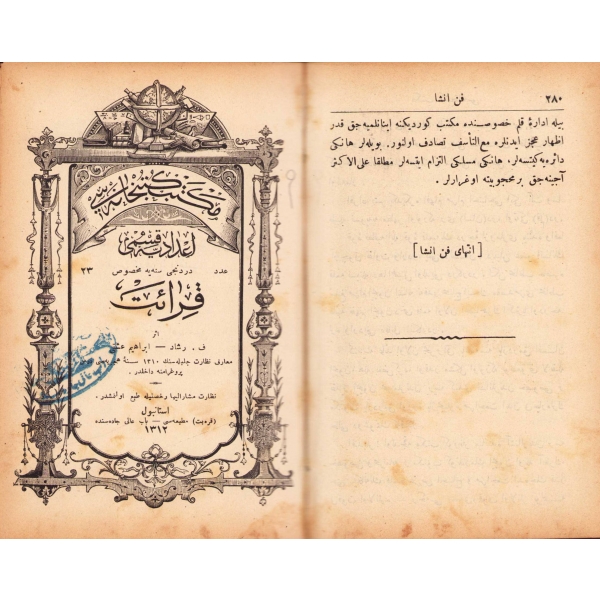 ٢٨٠
فن انشا
بیله ادارهٔ قلم خصوصنده مکتب کوردیکنه اینانلمیه‌جق قدر
اظهار عجز ایدنلره مع التأسف تصادف اولنور. بویله‌لر هانکی
دائره‌یه کیتسه‌لر، هانکی مسلکی التزام ایتسه‌لر مطلقا علی الاکثر
آجینه‌جق بر محجوبیته اوغرارلر.
[انتهای فن انشا]
مکتب کتبخانه‌سی
اعدادیه قسمی
عدد ٢٣
دردنجی سنه‌یه مخصوص
قرائت
اثر
ف. رشاد — ابراهیم
معارف نظارت جلیله‌سنك ١٣١٠ سنهٔ
پروغرامنه داخلدر.
نظارت مشارالیها رخصتیله طبع اولنمشدر.
استانبول
(قره‌بت) مطبعه‌سی — باب عالی جاده‌سنده
١٣١٢